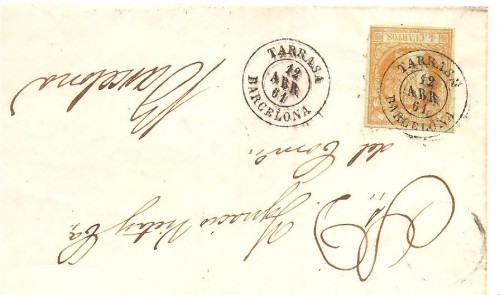 4 CUARTOS
TARRASA
12
ABR
61
BARCELONA
TARRASA
12
ABR
61
BARCELONA
Sr. D. Ignacio
del Com.º
Barcelona